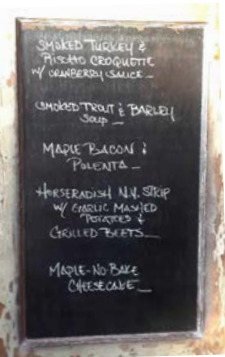 SMOKED TURKEY &
RISOTTO CROQUETTE
W/ CRANBERRY SAUCE
SMOKED TROUT & BARLEY
SOUP
MAPLE BACON &
POLENTA
HORSERADISH N.Y. STRIP
W/ GARLIC MASHED
POTATOES &
GRILLED BEETS
MAPLE-NO-BAKE
CHEESECAKE